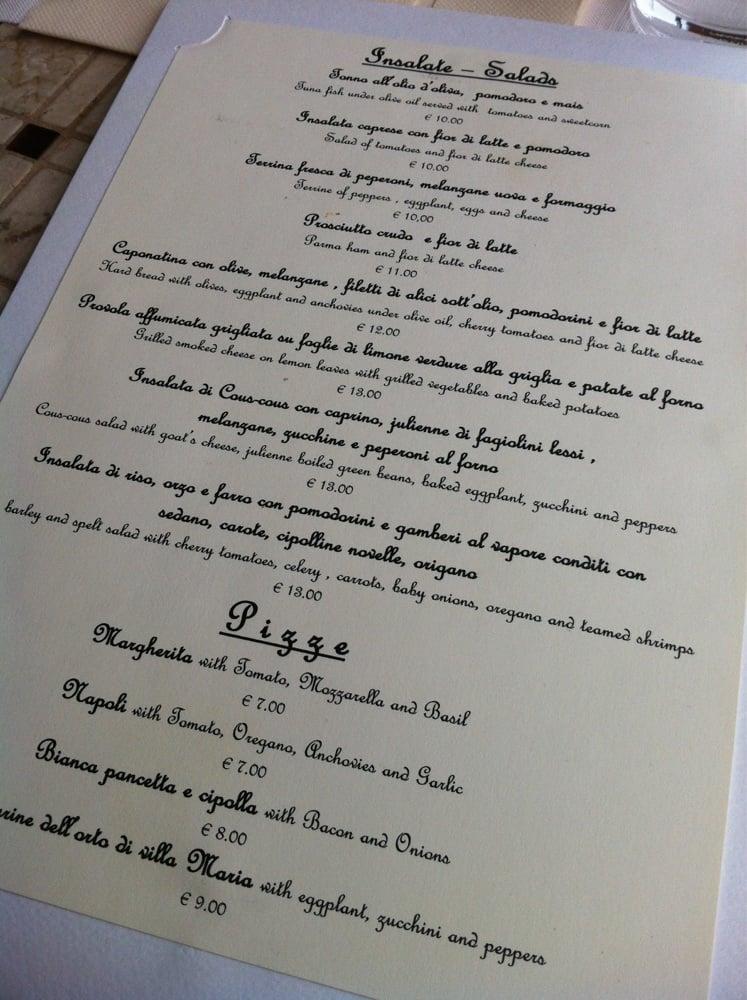 Insalate - Salads
Tonno all'olio d'oliva, pomodoro e mais
Tuna fish under olive oil served with tomatoes and sweetcorn
€ 10.00
Insalata caprese con fior di latte e pomodoro
Salad of tomatoes and fior di latte cheese
€ 10.00
Terrina fresca di peperoni, melanzane uova e formaggio
Terrine of peppers , eggplant, eggs and cheese
€ 10,00
Prosciutto crudo e fior di latte
Parma ham and fior di latte cheese
€ 11.00
Caponatina con olive, melanzane , filetti di alici sott'olio, pomodorini e fior di latte
Hard bread with olives, eggplant and anchovies under olive oil, cherry tomatoes and fior di latte cheese
€ 12.00
Provola affumicata grigliata su foglie di limone verdure alla griglia e patate al forno
Grilled smoked cheese on lemon leaves with grilled vegetables and baked potatoes
€ 13.00
Insalata di Cous-cous con caprino, julienne di fagiolini lessi ,
melanzane, zucchine e peperoni al forno
Cous-cous salad with goat's cheese, julienne boiled green beans, baked eggplant, zucchini and peppers
€ 13.00
Insalata di riso, orzo e farro con pomodorini e gamberi al vapore conditi con
sedano, carote, cipolline novelle, origano
barley and spelt salad with cherry tomatoes, celery , carrots, baby onions, oregano and teamed shrimps
€ 13.00
Pizze
Margherita with Tomato, Mozzarella and Basil
€ 7.00
Napoli with Tomato, Oregano, Anchovies and Garlic
€ 7.00
Bianca pancetta e cipolla with Bacon and Onions
€ 8.00
dell'orto di villa Maria with eggplant, zucchini and peppers
€ 9.00